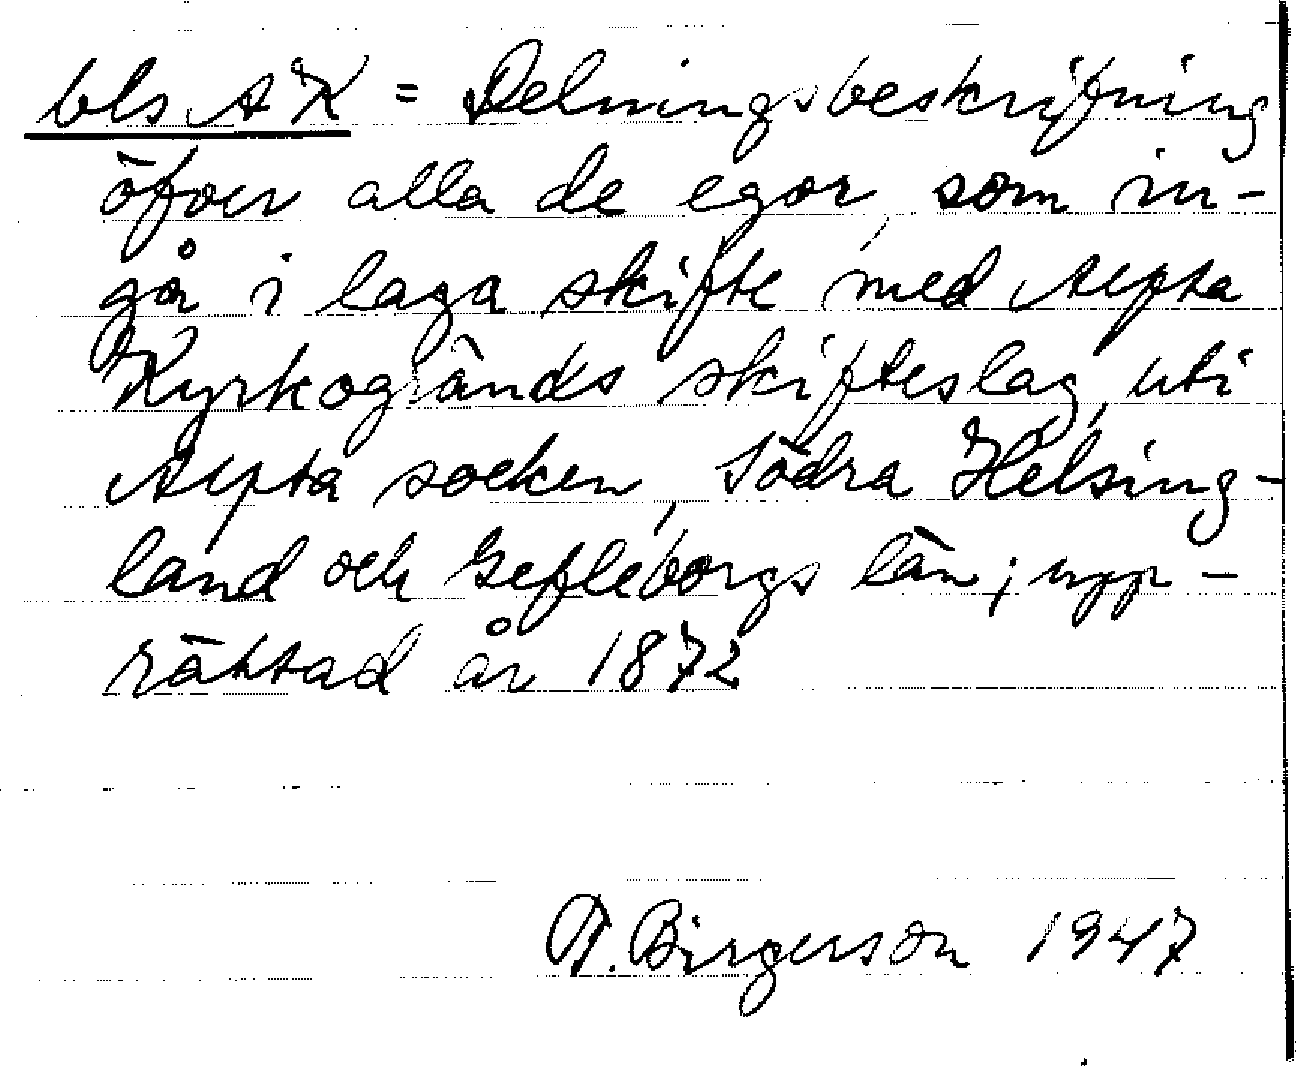 bls AK = Delningsbeskrifning
öfver alla de egor, som in-
gå i laga skifte med Alfta
Kyrkogränds skifteslag, uti
Alfta socken, Södra Helsing-
land och Gefleborgs län; upp-
rättad år 1872
T. Birgerson 1947